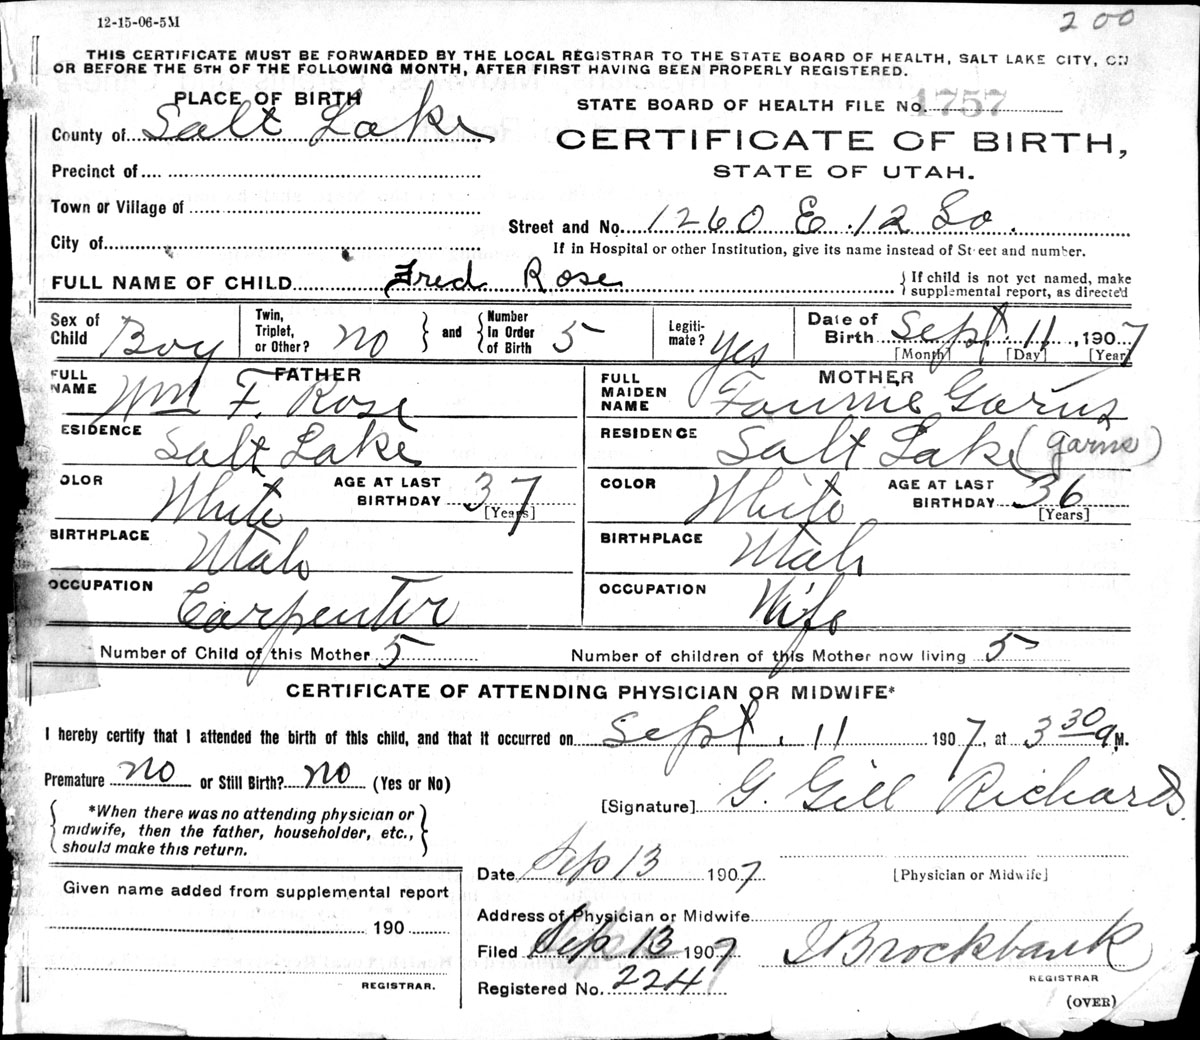 12-15-06-5M
200
THIS CERTIFICATE MUST BE FORWARDED BY THE LOCAL REGISTRAR TO THE STATE BOARD OF HEALTH, SALT LAKE CITY, ON
OR BEFORE THE 5TH OF THE FOLLOWING MONTH, AFTER FIRST HAVING BEEN PROPERLY REGISTERED.
PLACE OF BIRTH
STATE BOARD OF HEALTH FILE No. 1757
County of Salt Lake
CERTIFICATE OF BIRTH,
STATE OF UTAH.
Precinct of
Town or Village of
Street and No. 1260 E. 12 So.
City of
If in Hospital or other Institution, give its name instead of Street and number.
FULL NAME OF CHILD Fred Rose
{ If child is not yet named, make
supplemental report, as directed
Sex of Child Boy
Twin, Triplet, or Other? no } and { Number In Order of Birth 5
Legiti-mate? yes
Date of Birth Sept 11, 1907
[Month] [Day] [Year]
FATHER
FULL NAME Wm F. Rose
MOTHER
FULL MAIDEN NAME Fannie Garns
ESIDENCE Salt Lake
RESIDENCE Salt Lake (Garns)
OLOR White AGE AT LAST BIRTHDAY 37
[Years]
COLOR White AGE AT LAST BIRTHDAY 36
[Years]
BIRTHPLACE Utah
BIRTHPLACE Utah
OCCUPATION Carpenter
OCCUPATION Wife
Number of Child of this Mother 5
Number of children of this Mother now living 5
CERTIFICATE OF ATTENDING PHYSICIAN OR MIDWIFE*
I hereby certify that I attended the birth of this child, and that it occurred on Sept. 11 1907, at 3 30 a M.
Premature no or Still Birth? no (Yes or No)
[Signature] G. Gill Richards.
{ *When there was no attending physician or
midwife, then the father, householder, etc.,
should make this return. }
Date Sep 13 1907
[Physician or Midwife]
Given name added from supplemental report
190
REGISTRAR.
Address of Physician or Midwife
Filed Sep 13 1907
Brockbank
REGISTRAR
Registered No. 224
(OVER)